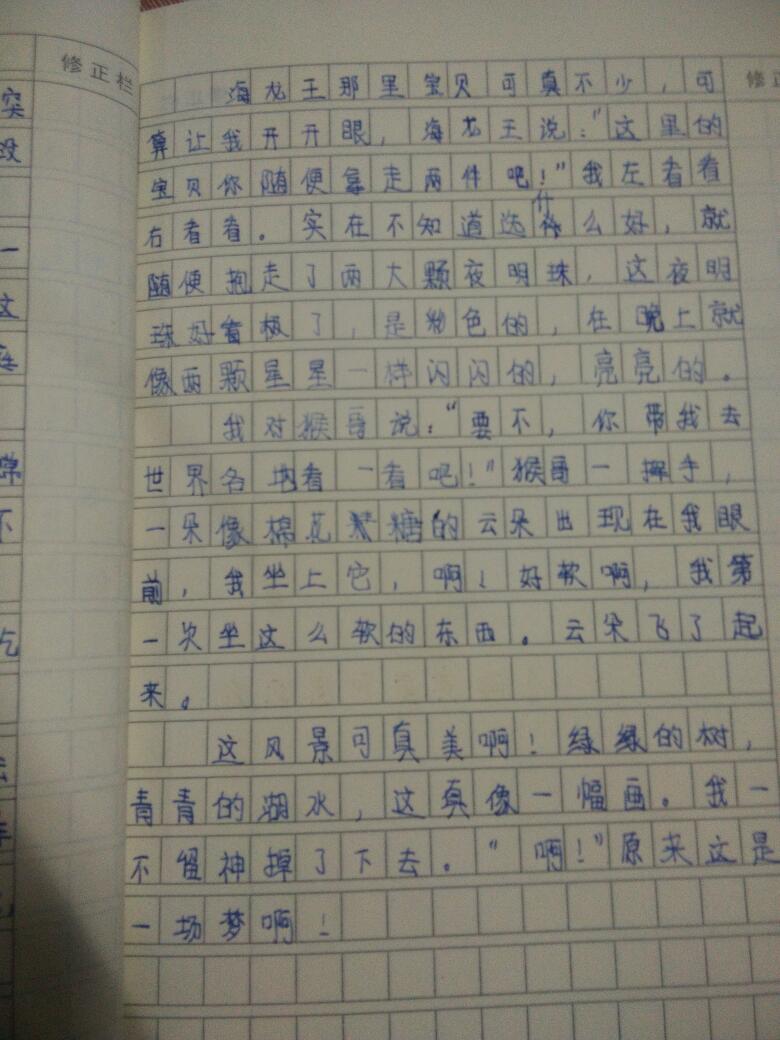 修正栏
修正
突
一
这
不
海龙王那里宝贝可真不少，可
算让我开开眼，海龙王说：“这里的
宝贝你随便拿走两件吧！”我左看看
右看看。实在不知道选什么好，就
随便抱走了两大颗夜明珠，这夜明
珠好看极了，是粉色的，在晚上就
像两颗星星一样闪闪的，亮亮的。
我对猴哥说：“要不，你带我去
世界各地看一看吧！”猴哥一挥手，
一朵像棉花糖的云朵出现在我眼
前，我坐上它，啊！好软啊，我第
一次坐这么软的东西。云朵飞了起
来。
这风景可真美啊！绿绿的树，
青青的湖水，这真像一幅画。我一
不留神掉了下去。“啊！”原来这是
一场梦啊！